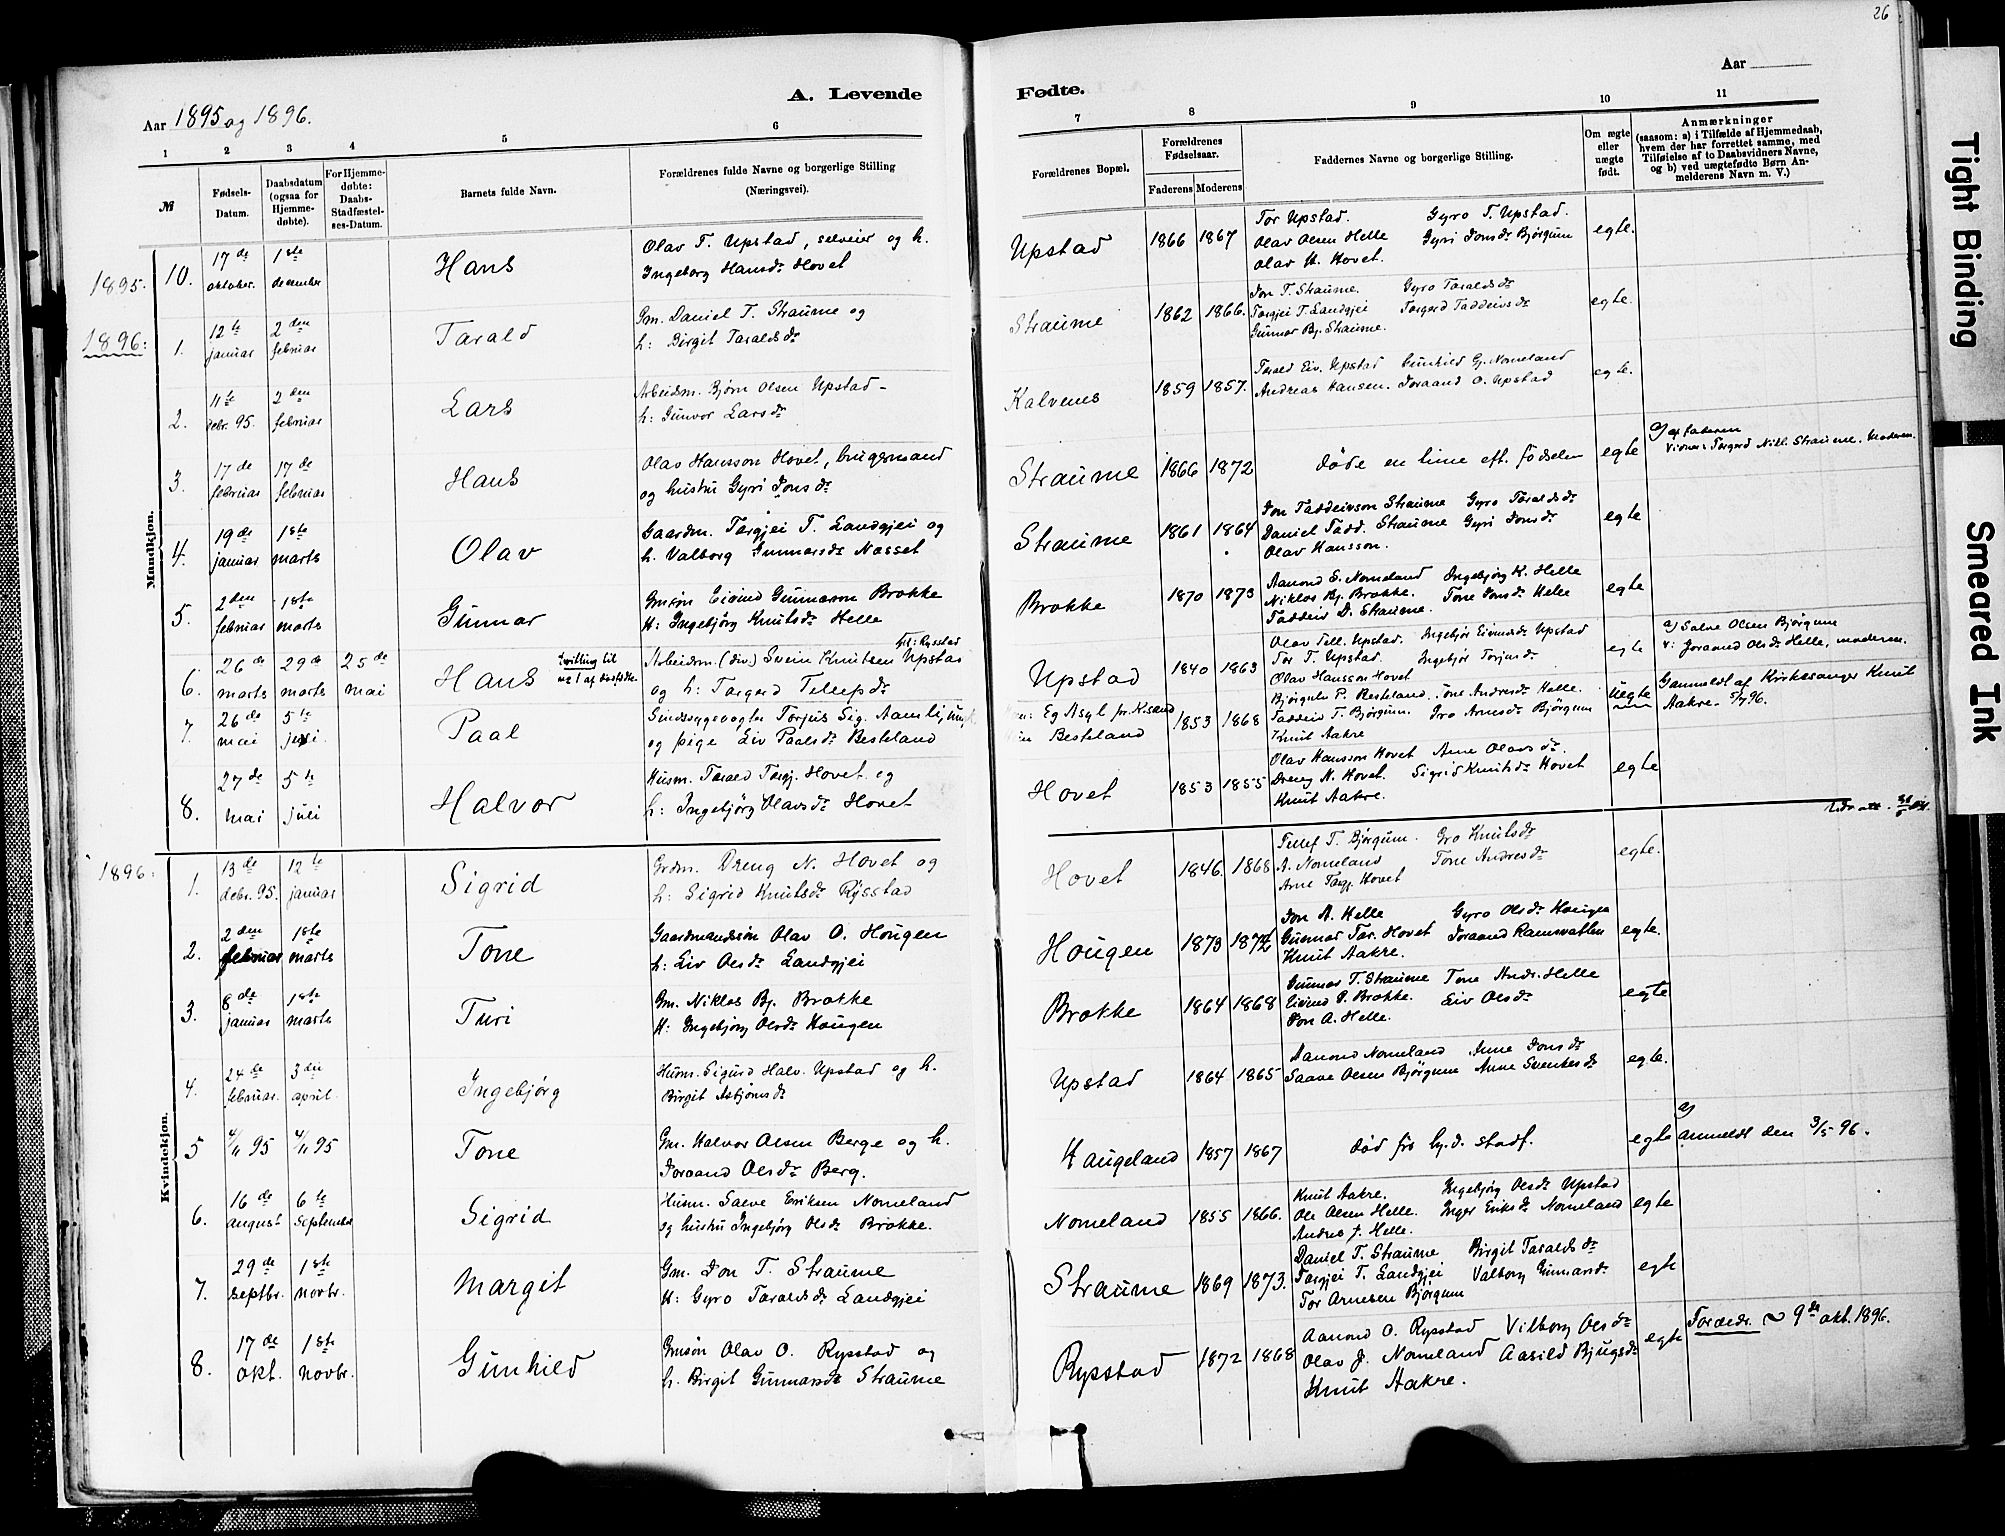 26
Aar 1895 og 1896.
A. Levende
Fødte.
Aar
1 2 3 4 5 6 7 8 9 10 11
№
Fødsels-Datum.
Daabsdatum (ogsaa for Hjemmedøbte).
For Hjemmedøbte: Daabs-Stadfæstelses-Datum.
Barnets fulde Navn.
Forældrenes fulde Navne og borgerlige Stilling (Næringsvei).
Forældrenes Bopæl.
Forældrenes Fødselsaar.
Faderens Moderens
Faddernes Navne og borgerlige Stilling.
Om ægte eller uægte født.
Anmærkninger
(saasom: a) i Tilfælde af Hjemmedaab, hvem der har forrettet samme, med Tilføielse af to Daabsvidners Navne, og b) ved uægtefødte Børn Anmelderens Navn m. V.)
Mandkjøn.
1895. 10. 17de oktober. 1ste december Hans
Olav T. Upstad, selveier og h.
Ingeborg Hansdr Hovet
Upstad 1866 1867
Tor Upstad. Gyro T. Upstad.
Olav Olsen Helle Gyri Jonsdr Bjørgum
Olav H. Hovet.
egte.
1896: 1. 12te januar 2den februar Tarald
Gm. Daniel T. Straume og
h: Birgit Taraldsdr
Straume 1862 1866.
Jon T. Straume. Gyro Taraldsdr
Torgjei T. Landgjei Torgerd Taddeivsdr
Gunnar Bj. Straume.
egte.
2. 11te debr. 95. 2den februar Lars
Arbeidsm. Bjørn Olsen Upstad -
h: Gunvor Larsdr
Kalvenes 1859 1857.
Tarald Eiv. Upstad Gunhild G. Nomeland
Andreas Hansen. Joraand O. Upstad
egte.
3. 17de februar 17de februar Hans
Olav Hansson Hovet, brugsmand
og hustru Gyri Jonsdr
Straume 1866 1872
døde en time eft. fødselen
egte
a) af faderen
Vidner: Torgerd Nikl. Straume. moderen.
4. 19de januar 1ste marts Olav
Gaardm. Torgjei T. Landgjei og
h. Valborg Gunnarsdr Næsset
Straume 1861 1864
Jon Taddeivson Straume Gyro Taraldsdr
Daniel Tadd. Straume Gyri Jonsdr
Olav Hansson.
egte
5. 2den februar 1ste marts Gunnar
Gmsøn Eivind Gunnarson Brokke
H: Ingebjørg Knutsdr Helle
Brokke 1870 1873
Aanond S. Nomeland Ingebjørg K. Helle
Niklos Bj. Brokke. Tone Jonsdr Helle
Taddeiv D. Straume.
egte
6. 26de marts 29de marts 25de mai Hans
Arbeidsm. (div.) Svein Knutsen Upstad
og h: Torgerd Tellefsdr
Upstad 1840 1863
Olav Tell. Upstad. Ingebjør Eivindsdr Upstad
Tor T. Upstad. Ingebjør Torjusdr
Olav Hansson Hovet
egte
a) Salve Olsen Bjørgum
v: Joraand Olsdr Helle, moderen.
7. 26de mai 5te juli Paal
Sindssygevogter Torjus Sig. Aamli, ungk.
og pige Liv Paalsdr Besteland
Eg Asyl pr. K.sand
Besteland
1853 1868
Bjørgulv P. Besteland. Tone Andresdr Helle.
Taddeiv T. Bjørgum. Gro Arnesdr Bjørgum
Knut Aakre
uegte
anmeldt af Kirkesanger Knut
Aakre. 5/7 96.
8. 27de mai 5te juli Halvor
Husm. Tarald Torgj. Hovet og
h: Ingebjørg Olavsdr Hovet
Hovet 1853 1855
Olav Hansson Hovet Anne Olavsdr.
Dreng N. Hovet. Sigrid Knutsdr Hovet
Knut Aakre.
egte
Kvindekjøn.
1896: 1. 13de debr. 95. 12te januar Sigrid
Grdm. Dreng N. Hovet og
h: Sigrid Knutsdr Rysstad
Hovet 1846. 1868
Tellef T. Bjørgum. Gro Knutsdr
A. Nomeland Tone Andresdr
Arne Torgj. Hovet
egte.
2. 2den februar 1ste marts Tone
Gaardmandssøn Olav O. Hougen
h: Liv Olsdr Landgjei
Hougen 1873
Jon A. Helle Gyro Olsdr Hougen
Gunnar Tar. Hovet Joraand Ramsvatten
Knut Aakre.
egte.
3. 8de januar 1ste marts Turi
Gm. Niklos Bj. Brokke
H: Ingebjørg Olsdr Hougen
Brokke 1864 1868
Gunnar T. Straume Tone Andr. Helle
Eivind G. Brokke. Liv Olsdr
Jon A. Helle.
egte
4. 24de februar. 3die april. Ingebjørg
Husm. Sigurd Halv. Upstad og h.
Birgit Asbjørnsdr
Upstad 1864 1865
Aanond Nomeland Anne Jonsdr
Saave Olsen Bjørgum Anne Svenkesdr
egte.
5 4/11 95 4/11 95 Tone
Gm. Halvor Olsen Berge og h.
Joraand Olsdr Berg.
Haugeland 1857 1867
død før hj.d. stadf.
egte
a) anmeldt den 3/5 96.
6. 16de august 6te September Sigrid
Husm. Salve Eriksen Nomeland
og hustru Ingebjørg Olsdr Brokke.
Nomeland 1855 1866.
Knut Aakre. Ingebjørg Olsdr Upstad
Ole Olsen Helle. Inger Eriksdr Nomeland
Andres J. Helle.
egte
7. 29de septbr. 1ste novbr. Margit
Gm. Jon T. Straume
H: Gyro Taraldsdr Landgjei
Straume 1869 1873.
Daniel T. Straume Birgit Taraldsdr
Torgjei T. Landgjei Valborg Gunnarsdr
Tor Arnesen Bjørgum
egte
8. 17de okt. 1ste novbr. Gunhild
Gmsøn Olav O. Rysstad og
h. Birgit Gunnarsdr Straume
Rysstad 1872 1868
Aanond O. Rysstad Vilborg Olsdr
Olav J. Nomeland Aasild Bjugsdr
Knut Aakre.
egte
Foræld. ~ 9de okt. 1896.
Tight Binding
Smeared Ink